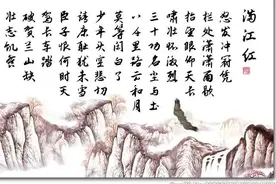 满江红
怒发冲冠凭
栏处潇潇雨歇
抬望眼仰天长
啸壮怀激烈
三十功名尘与土
八千里路云和月
莫等闲白了
少年头空悲切
靖康耻犹未雪
臣子恨何时灭
驾长车踏
破贺兰山缺
壮志饥餐